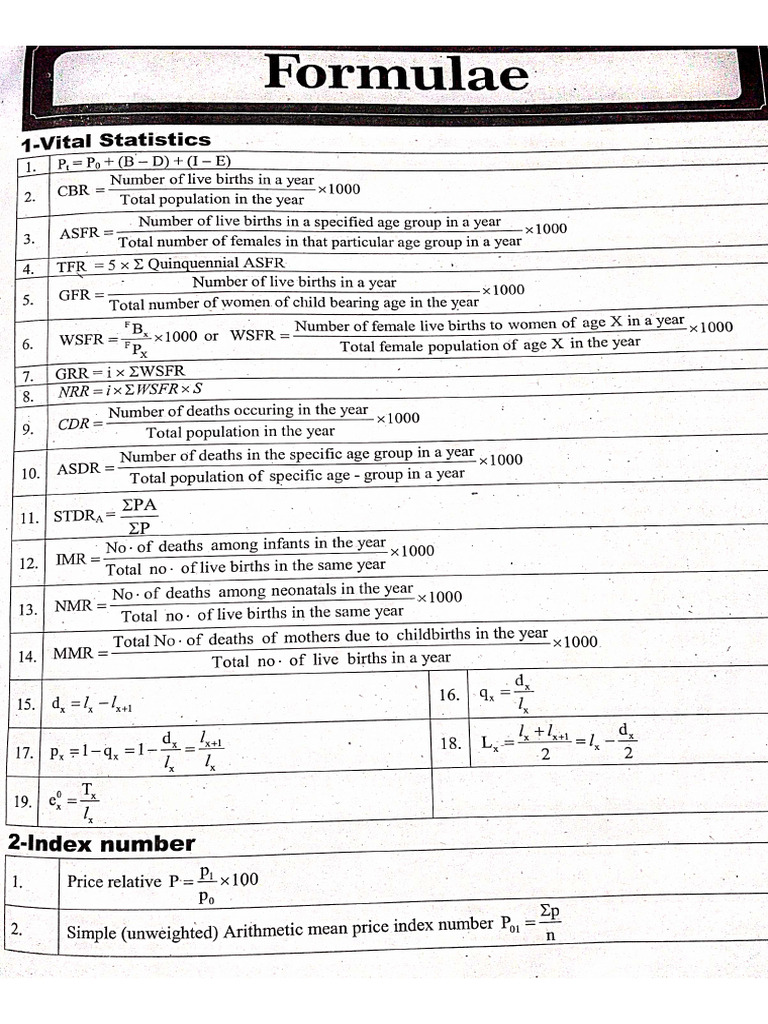 Formulae
1-Vital Statistics
1. Pₜ = P₀ + (B – D) + (I – E)
2. CBR = Number of live births in a year / Total population in the year ×1000
3. ASFR = Number of live births in a specified age group in a year / Total number of females in that particular age group in a year ×1000
4. TFR = 5 × Σ Quinquennial ASFR
5. GFR = Number of live births in a year / Total number of women of child bearing age in the year ×1000
6. WSFR = ᶠBₓ / ᶠPₓ ×1000 or WSFR = Number of female live births to women of age X in a year / Total female population of age X in the year ×1000
7. GRR = i × ΣWSFR
8. NRR = i × ΣWSFR × S
9. CDR = Number of deaths occuring in the year / Total population in the year ×1000
10. ASDR = Number of deaths in the specific age group in a year / Total population of specific age - group in a year ×1000
11. STDR_A = ΣPA / ΣP
12. IMR = No· of deaths among infants in the year / Total no· of live births in the same year ×1000
13. NMR = No· of deaths among neonatals in the year / Total no· of live births in the same year ×1000
14. MMR = Total No· of deaths of mothers due to childbirths in the year / Total no· of live births in a year ×1000
15. dₓ = lₓ – lₓ₊₁ 16. qₓ = dₓ / lₓ
17. pₓ = 1 – qₓ = 1 – dₓ / lₓ = lₓ₊₁ / lₓ 18. Lₓ = lₓ + lₓ₊₁ / 2 = lₓ – dₓ / 2
19. e⁰ₓ = Tₓ / lₓ
2-Index number
1. Price relative P = p₁ / p₀ ×100
2. Simple (unweighted) Arithmetic mean price index number P₀₁ = Σp / n